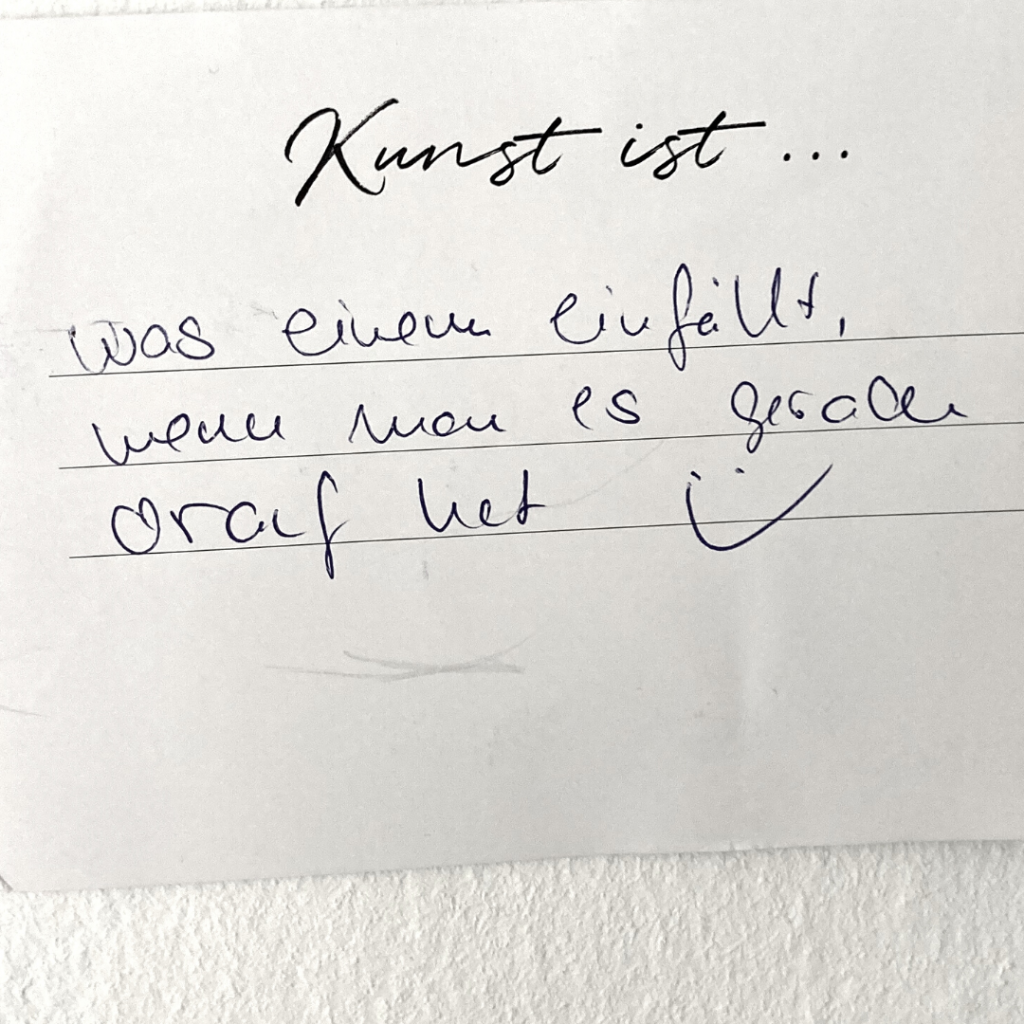 Kunst ist ...
was einem einfällt,
wenn man es gerade
drauf hat